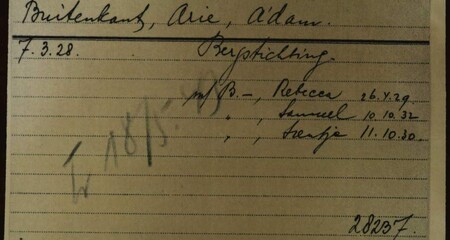 Buitenkant, Arie, A'dam.
7.3.28. Bergstichting.
m/ B.-, Rebecca 26.4.29
" , Samuel 10.10.32
" , Leentje 11.10.30.
Tr 18/5.43
28237.